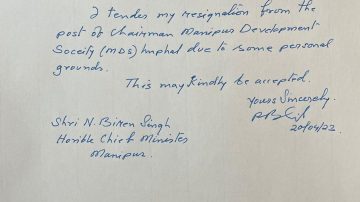 I tender my resignation from the
post of Chairman Manipur Development
Soceity (MDS) Imphal due to some personal
grounds.
This may kindly be accepted.
Yours Sincerely.
20/04/22
Shri N. Biren Singh
Hon'ble Chief Minister
Manipur.